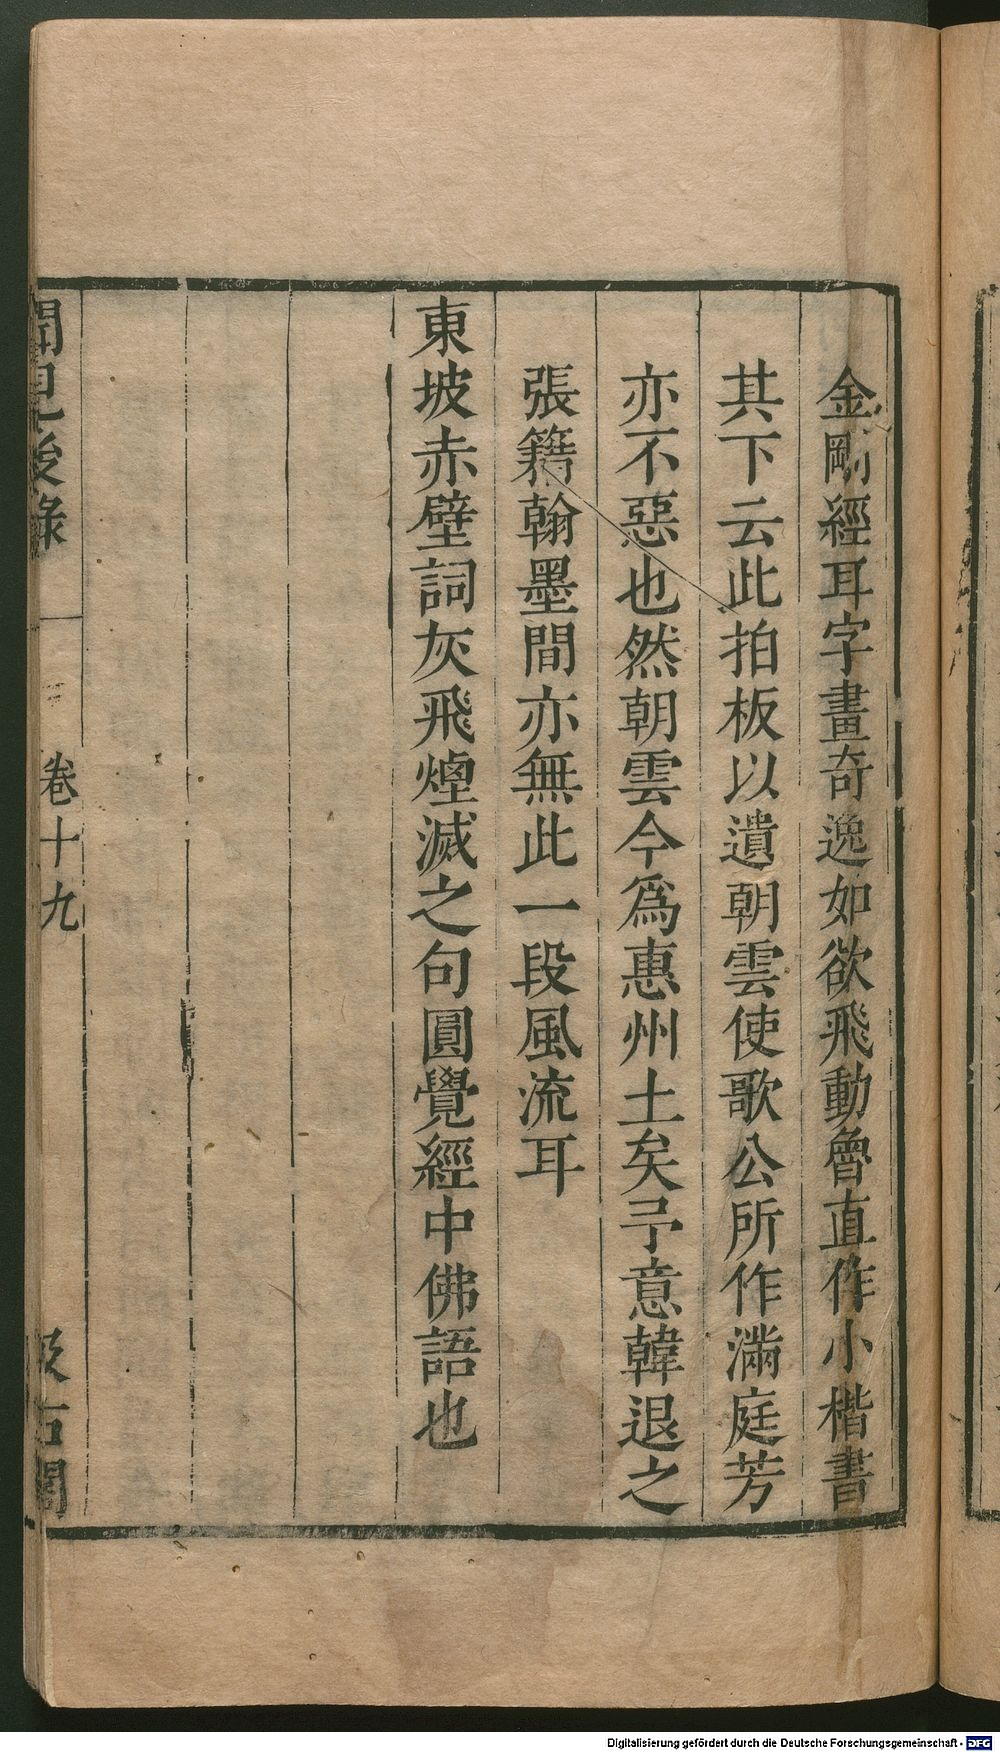 金剛經耳字畫奇逸如欲飛動魯直作小楷書
其下云此拍板以遺朝雲使歌公所作滿庭芳
亦不惡也然朝雲今爲惠州土矣予意韓退之
張籍翰墨間亦無此一段風流耳
東坡赤壁詞灰飛煙滅之句圓覺經中佛語也
聞見後錄
卷十九
汲古閣
Digitalisierung gefördert durch die Deutsche Forschungsgemeinschaft - DFG